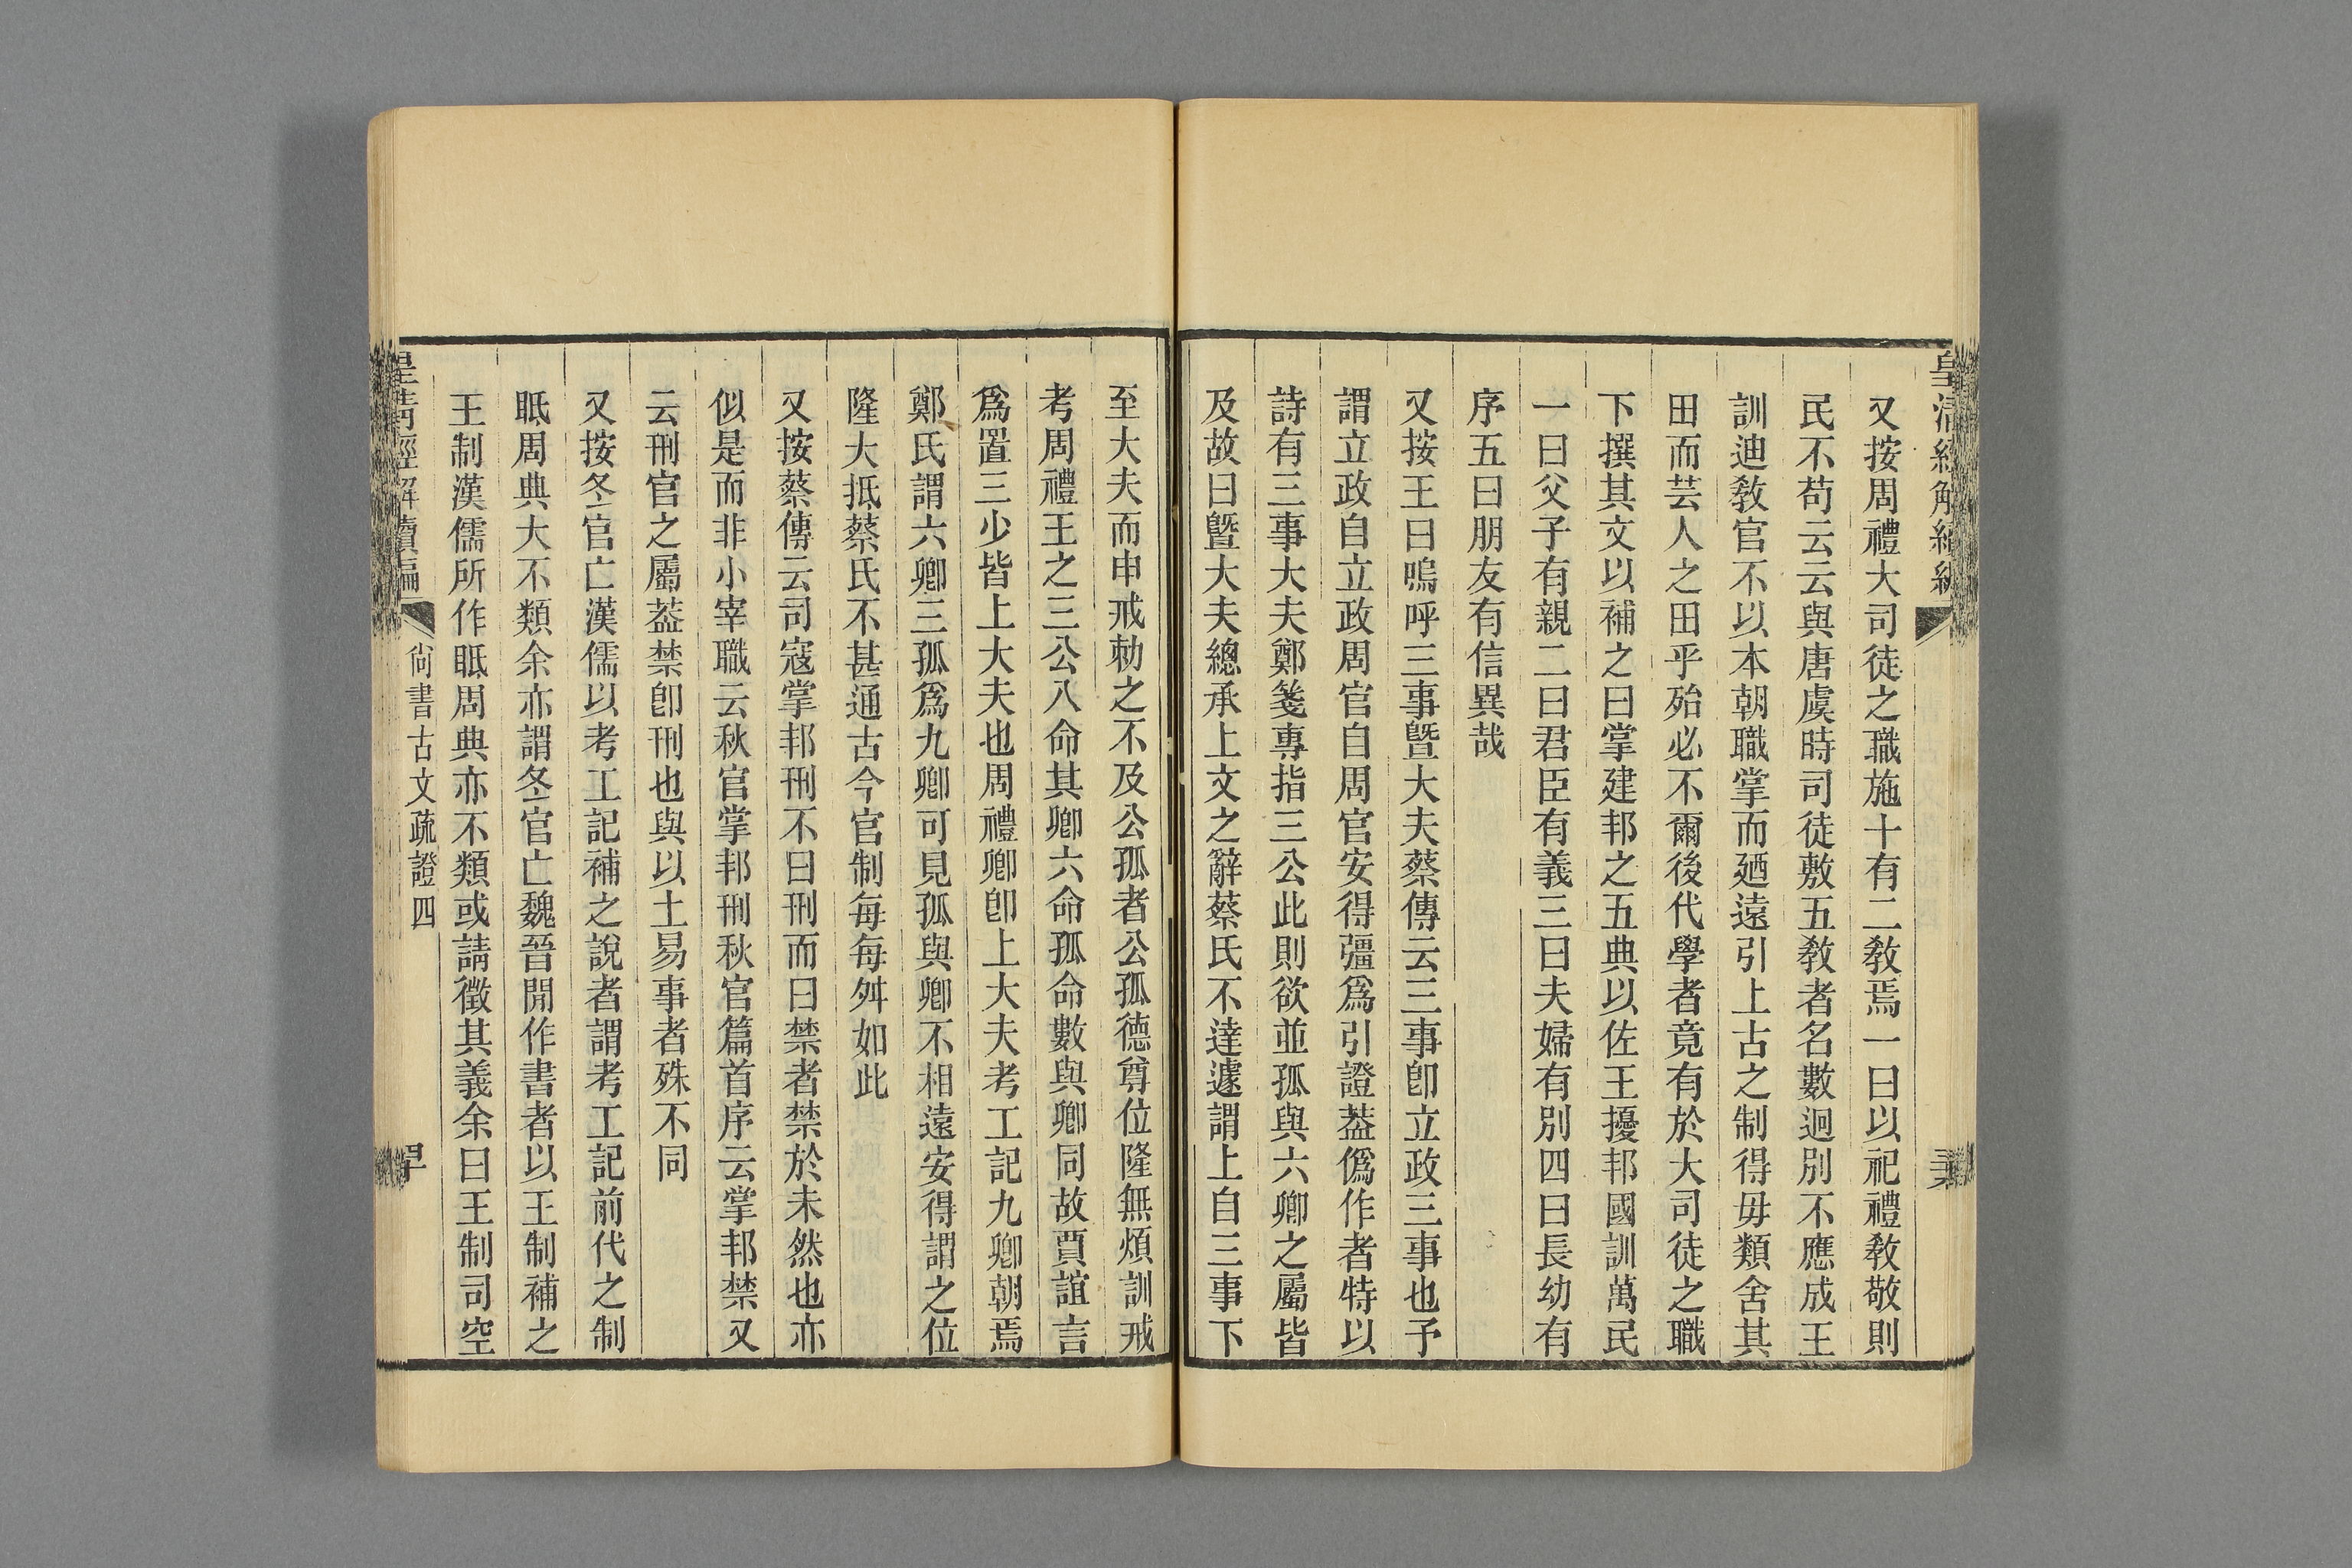 又按周禮大司徒之職施十有二敎焉一曰以祀禮敎敬則
民不苟云云與唐虞時司徒敷五敎者名數迥別不應成王
訓迪敎官不以本朝職掌而廼遠引上古之制得毋類舍其
田而芸人之田乎殆必不爾後代學者竟有於大司徒之職
下撰其文以補之曰掌建邦之五典以佐王擾邦國訓萬民
一曰父子有親二曰君臣有義三曰夫婦有別四曰長幼有
序五曰朋友有信異哉
又按王曰嗚呼三事曁大夫蔡傳云三事卽立政三事也予
謂立政自立政周官自周官安得彊爲引證葢僞作者特以
詩有三事大夫鄭箋專指三公此則欲並孤與六卿之屬皆
及故曰曁大夫總承上文之辭蔡氏不達遽謂上自三事下
至大夫而申戒勑之不及公孤者公孤德尊位隆無煩訓戒
考周禮王之三公八命其卿六命孤命數與卿同故賈誼言
爲置三少皆上大夫也周禮卿卽上大夫考工記九卿朝焉
鄭氏謂六卿三孤爲九卿可見孤與卿不相遠安得謂之位
隆大抵蔡氏不甚通古今官制每每舛如此
又按蔡傳云司寇掌邦刑不曰刑而曰禁者禁於未然也亦
似是而非小宰職云秋官掌邦刑秋官篇首序云掌邦禁又
云刑官之屬葢禁卽刑也與以土易事者殊不同
又按冬官亡漢儒以考工記補之說者謂考工記前代之制
眡周典大不類余亦謂冬官亡魏晉閒作書者以王制補之
王制漢儒所作眡周典亦不類或請徵其義余曰王制司空
尙書古文疏證四